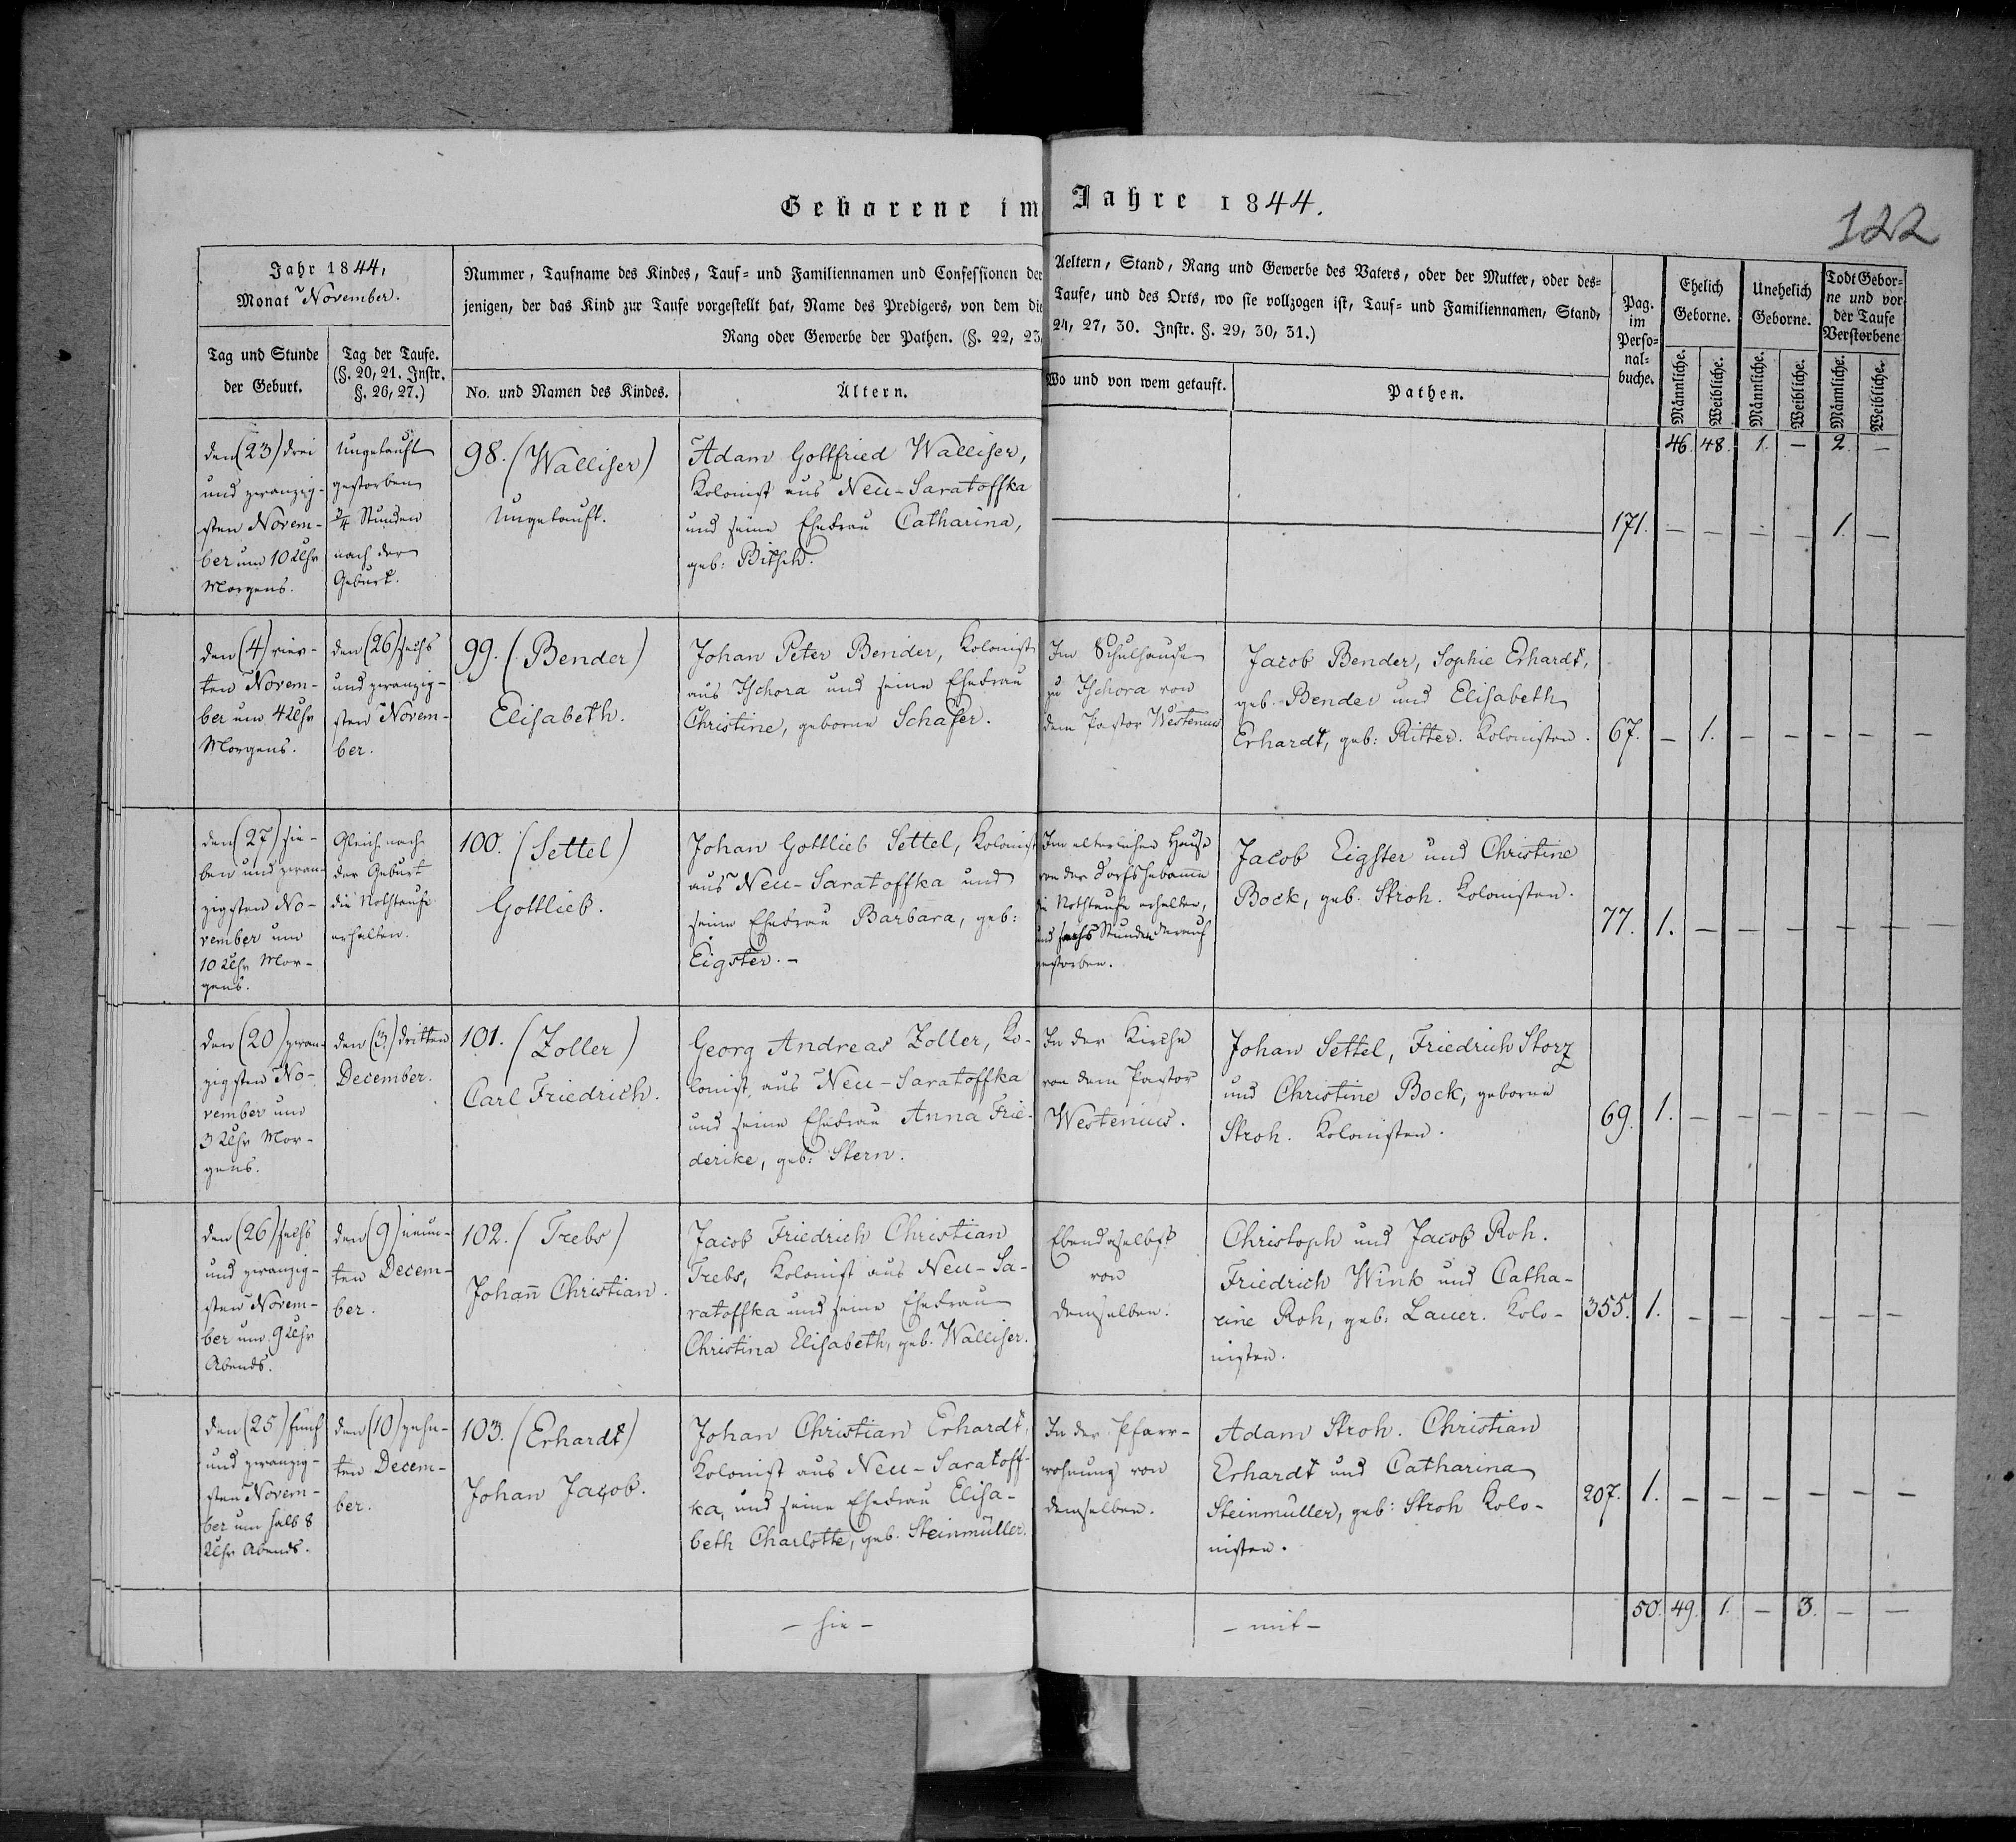 Geborene im Jahre 1844.
122
Jahr 1844,
Monat November.
Tag und Stunde
der Geburt.
Tag der Taufe.
(§. 20, 21. Instr.
§. 26, 27.)
Nummer, Taufname des Kindes, Tauf- und Familiennamen und Confessionen der Aeltern, Stand, Rang und Gewerbe des Vaters, oder der Mutter, oder des-
jenigen, der das Kind zur Taufe vorgestellt hat, Name des Predigers, von dem die Taufe, und des Orts, wo sie vollzogen ist, Tauf- und Familiennamen, Stand,
Rang oder Gewerbe der Pathen. (§. 22, 23, 24, 27, 30. Instr. §. 29, 30, 31.)
No. und Namen des Kindes.
Ältern.
Wo und von wem getauft.
Pathen.
Pag.
im
Perso-
nal-
buche.
Ehelich
Geborne.
Unehelich
Geborne.
Todt Gebor-
ne und vor
der Taufe
Verstorbene
Männliche.
Weibliche.
Männliche.
Weibliche.
Männliche.
Weibliche.
46. 48. 1. — 2. —
den (23) drei
und zwanzig-
sten Novem-
ber um 10 Uhr
Morgens.
Ungetauft
gestorben
3/4 Stunden
nach der
Geburt.
98. (Walliser)
Ungetauft.
Adam Gottfried Walliser,
Kolonist aus Neu-Saratoffka
und seine Ehefrau Catharina,
geb: Bitsch.
171. — — — — 1. —
den (4) vier-
ten Novem-
ber um 4 Uhr
Morgens.
den (26) sechs
und zwanzig-
sten Novem-
ber.
99. (Bender)
Elisabeth.
Johan Peter Bender, Kolonist
aus Ischora und seine Ehefrau
Christine, geborne Schäfer.
Im Schulhause
zu Ischora von
dem Pastor Westenius
Jacob Bender, Sophie Erhardt,
geb. Bender und Elisabeth
Erhardt, geb: Ritter. Kolonisten.
67. — 1. — — — — —
den (27) sie-
ben und zwan-
zigsten No-
vember um
10 Uhr Mor-
gens.
Gleich nach
der Geburt
die Nothtaufe
erhalten.
100. (Settel)
Gottlieb.
Johan Gottlieb Settel, Kolonist
aus Neu-Saratoffka und
seine Ehefrau Barbara, geb:
Eigster. —
Im elterlichen Hause
von der Dorfshebamme
die Nothtaufe erhalten,
und sechs Stunden darauf
gestorben.
Jacob Eigster und Christine
Bock, geb. Stroh. Kolonisten.
77. 1. — — — — — —
den (20) zwan-
zigsten No-
vember um
3 Uhr Mor-
gens.
den (3) dritten
December.
101. (Zoller)
Carl Friedrich.
Georg Andreas Zoller, Ko-
lonist aus Neu-Saratoffka
und seine Ehefrau Anna Frie-
derike, geb: Stern.
In der Kirche
von dem Pastor
Westenius.
Johan Settel, Friedrich Storz
und Christine Bock, geborne
Stroh. Kolonisten.
69. 1. — — — — — —
den (26) sechs
und zwanzig-
sten Novem-
ber um 9 Uhr
Abends.
den (9) neun-
ten Decem-
ber.
102. (Trebs)
Johan̄ Christian.
Jacob Friedrich Christian
Trebs, Kolonist aus Neu-Sa-
ratoffka und seine Ehefrau
Christina Elisabeth, geb. Walliser.
Ebendaselbst
von
demselben.
Christoph und Jacob Roh.
Friedrich Wink und Catha-
rine Roh, geb: Lauer. Kolo-
nisten.
355. 1. — — — — — —
den (25) fünf
und zwanzig-
sten Novem-
ber um halb 8
Uhr Abends.
den (10) zehn-
ten Decem-
ber.
103. (Erhardt)
Johan Jacob.
Johan Christian Erhardt,
Kolonist aus Neu-Saratoff-
ka, und seine Ehefrau Elisa-
beth Charlotte, geb. Steinmüller.
In der Pfarr-
wohnung von
demselben.
Adam Stroh. Christian
Erhardt und Catharina
Steinmüller, geb: Stroh Kolo-
nisten.
207. 1. — — — — — —
— hie — — mit — 50. 49. 1. — 3. — —